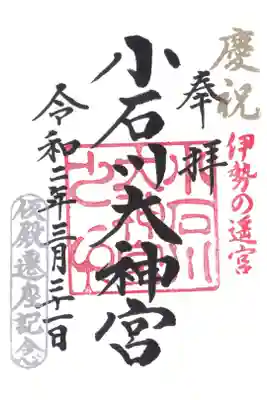 慶祝
奉拝
伊勢の遥宮
小石川大神宮
令和二年三月三十一日
仮殿遷座記念